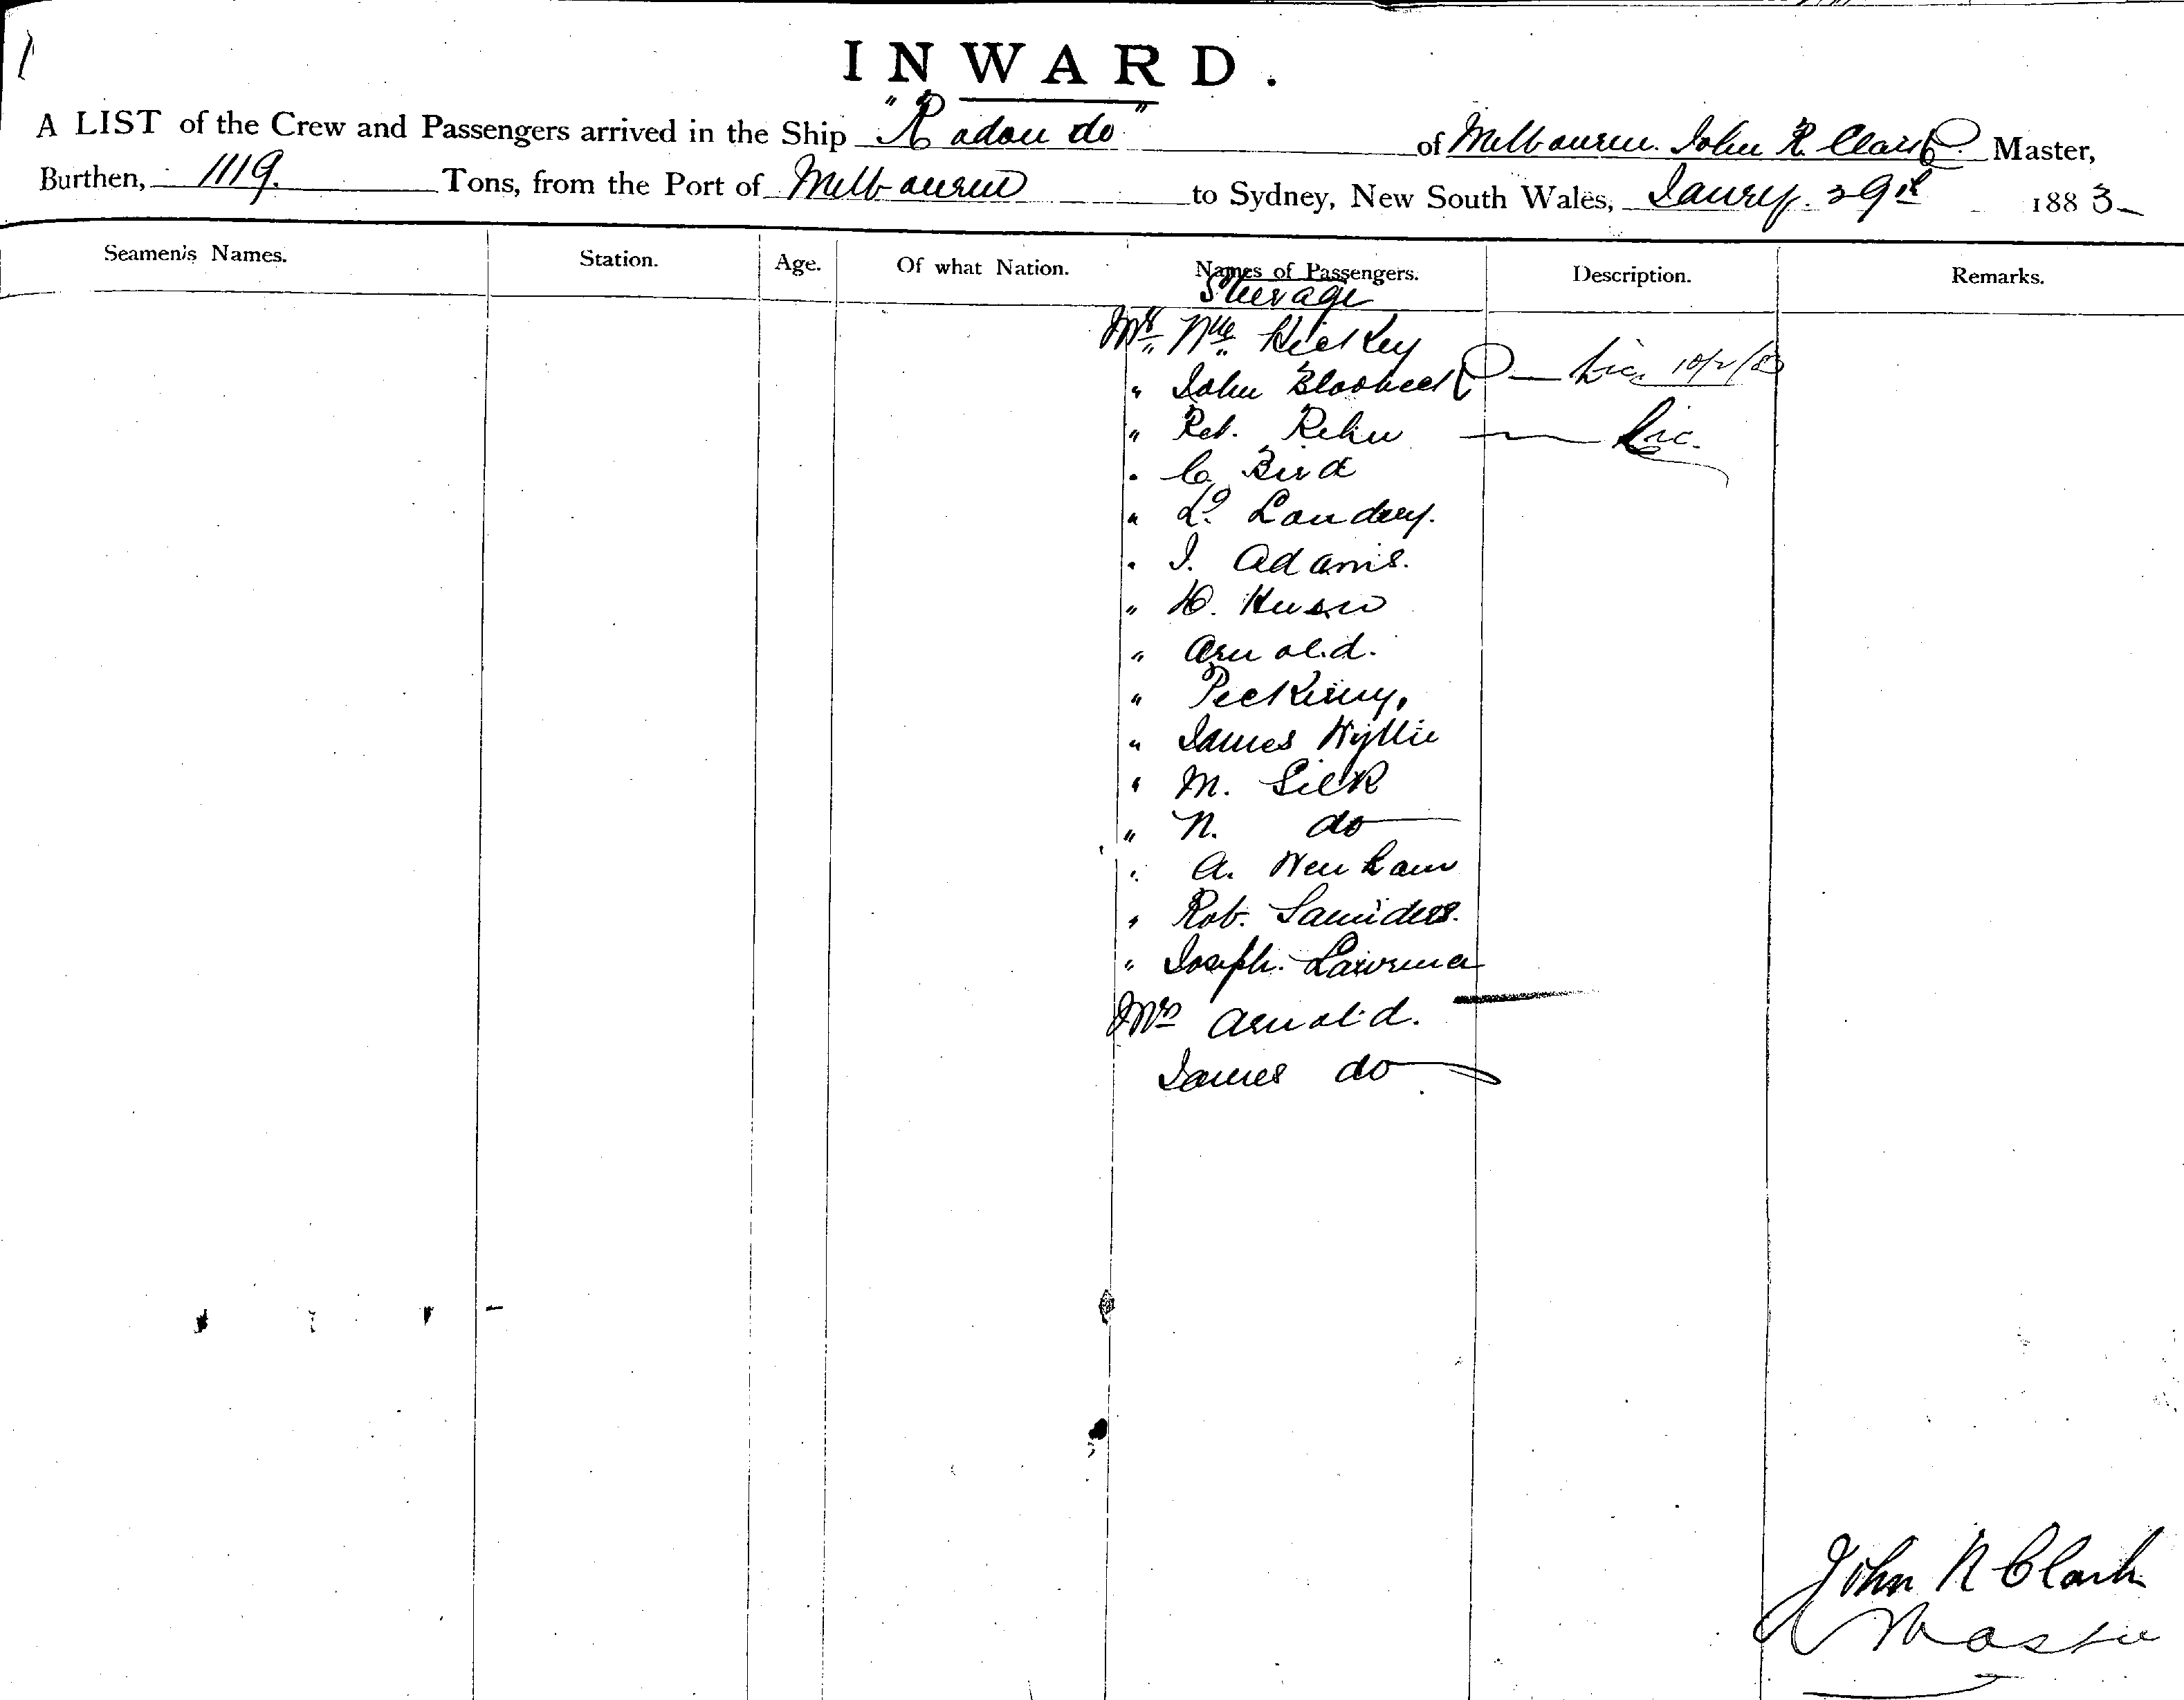 INWARD.
A LIST of the Crew and Passengers arrived in the Ship "Rodondo" of Melbourne. John R. Clark Master,
Burthen, 1119. Tons, from the Port of Melbourne to Sydney, New South Wales, Jany. 29th 1883
Seamen's Names. Station. Age. Of what Nation. Names of Passengers. Description. Remarks.
Steerage
Mr. Hickey
" John
" Rob.
" C. Bird
" Landery.
" J. Adams.
" H.
" Arnold.
" Peckering,
" James Wyllie
" M. Silk
" N. do
" A. Wenham
" Rob. Saunders.
" Joseph. Lawrence
Mrs Arnold.
James do
John R Clark
Master